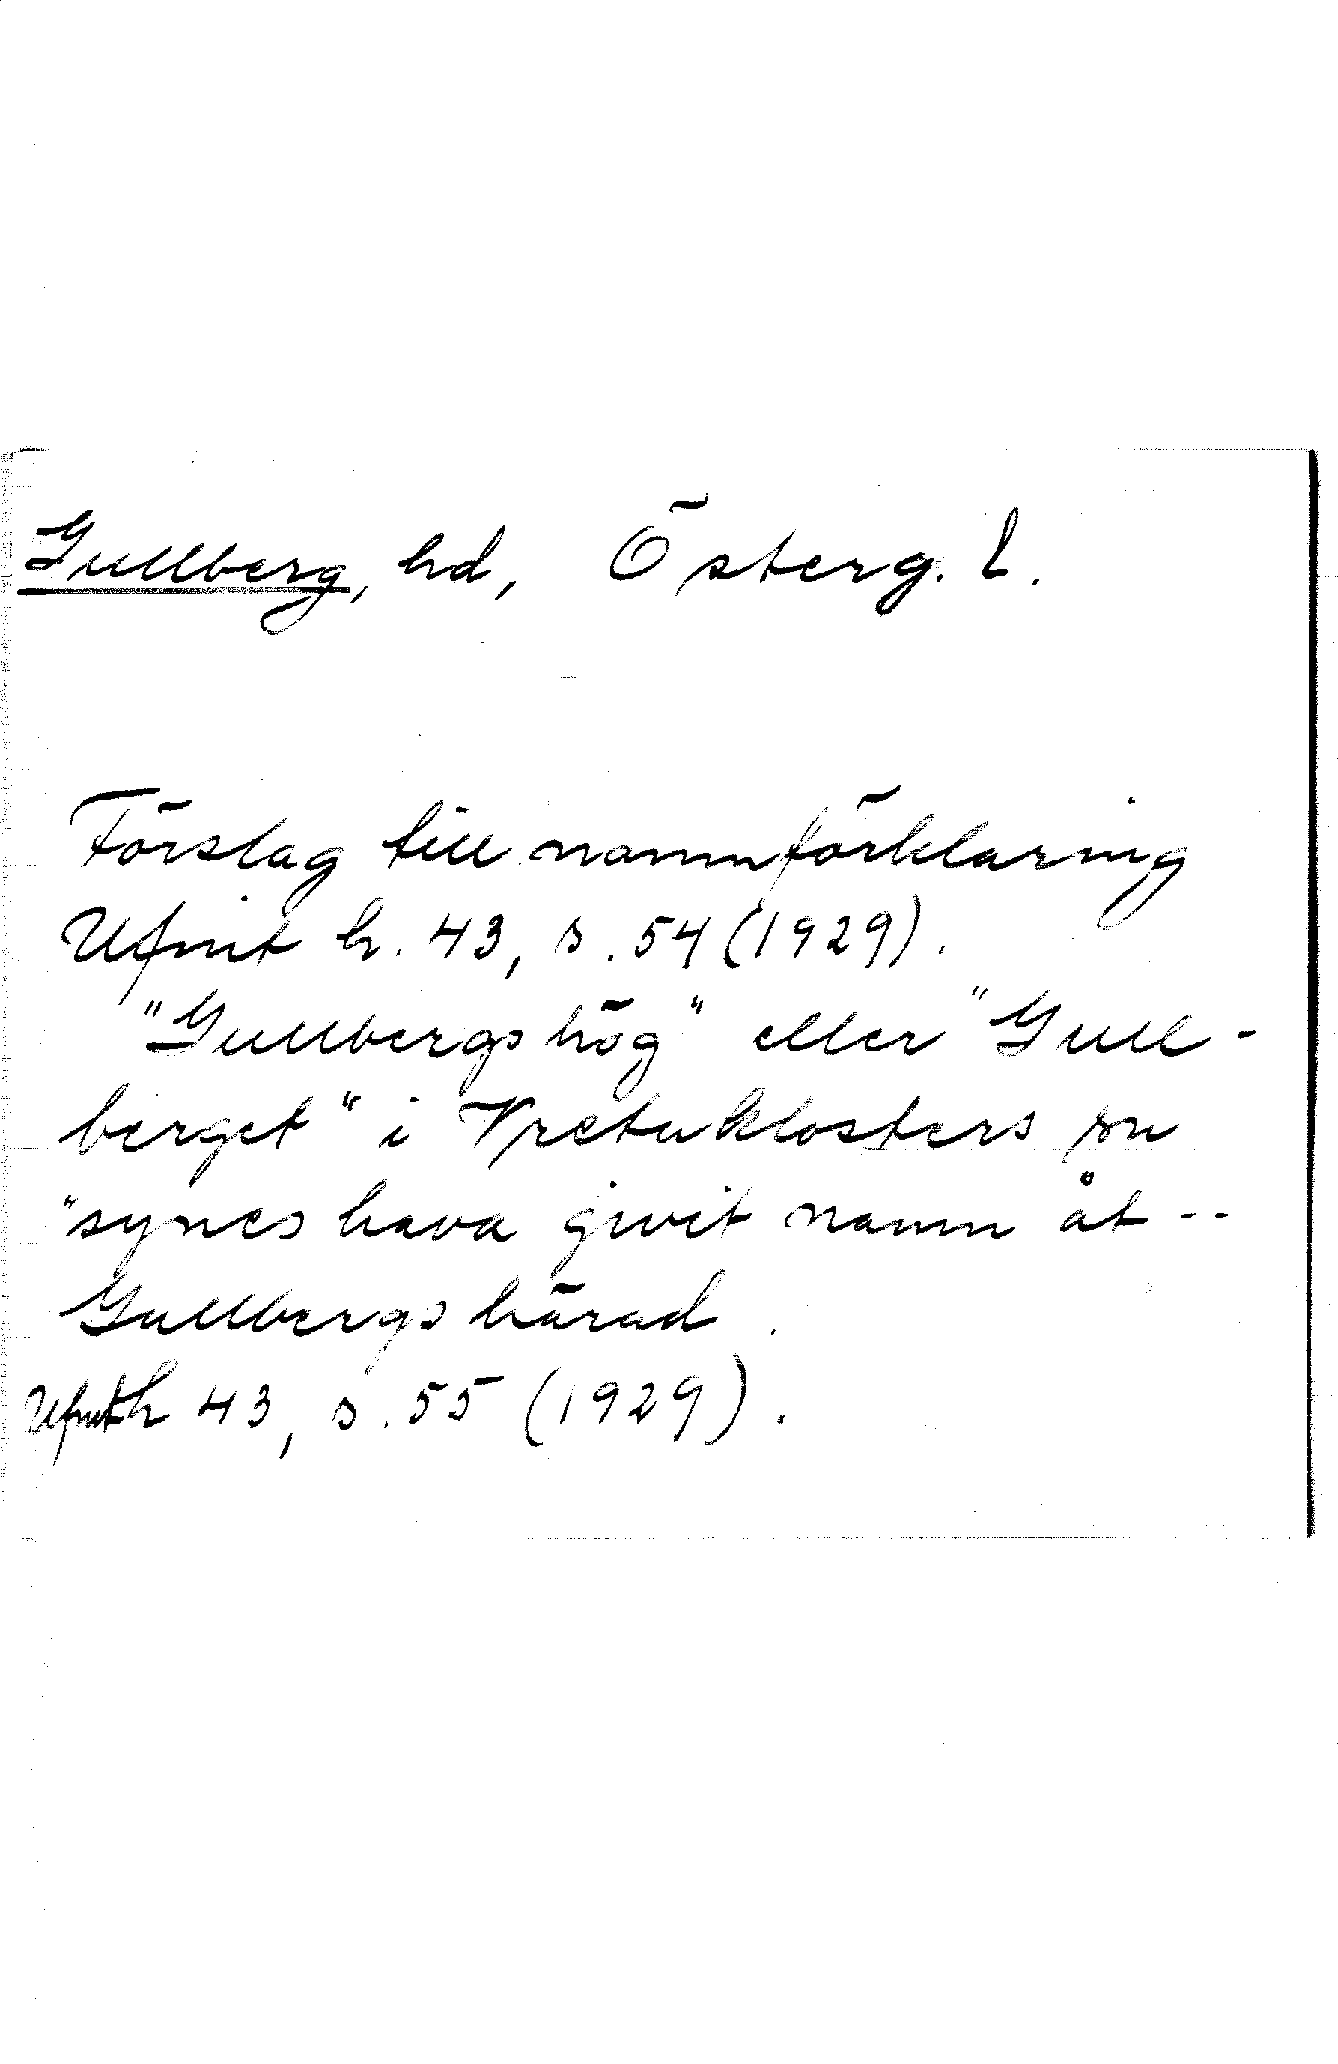 Gullberg, hd, Österg. l.
Förslag till namnförklaring
Ufmt h. 43, s. 54 (1929).
"Gullbergs hög" eller "Gull-
berget" i Vreta klosters sn
"synes hava givit namn åt --
Gullbergs härad.
Ufmt h 43, s. 55 (1929).